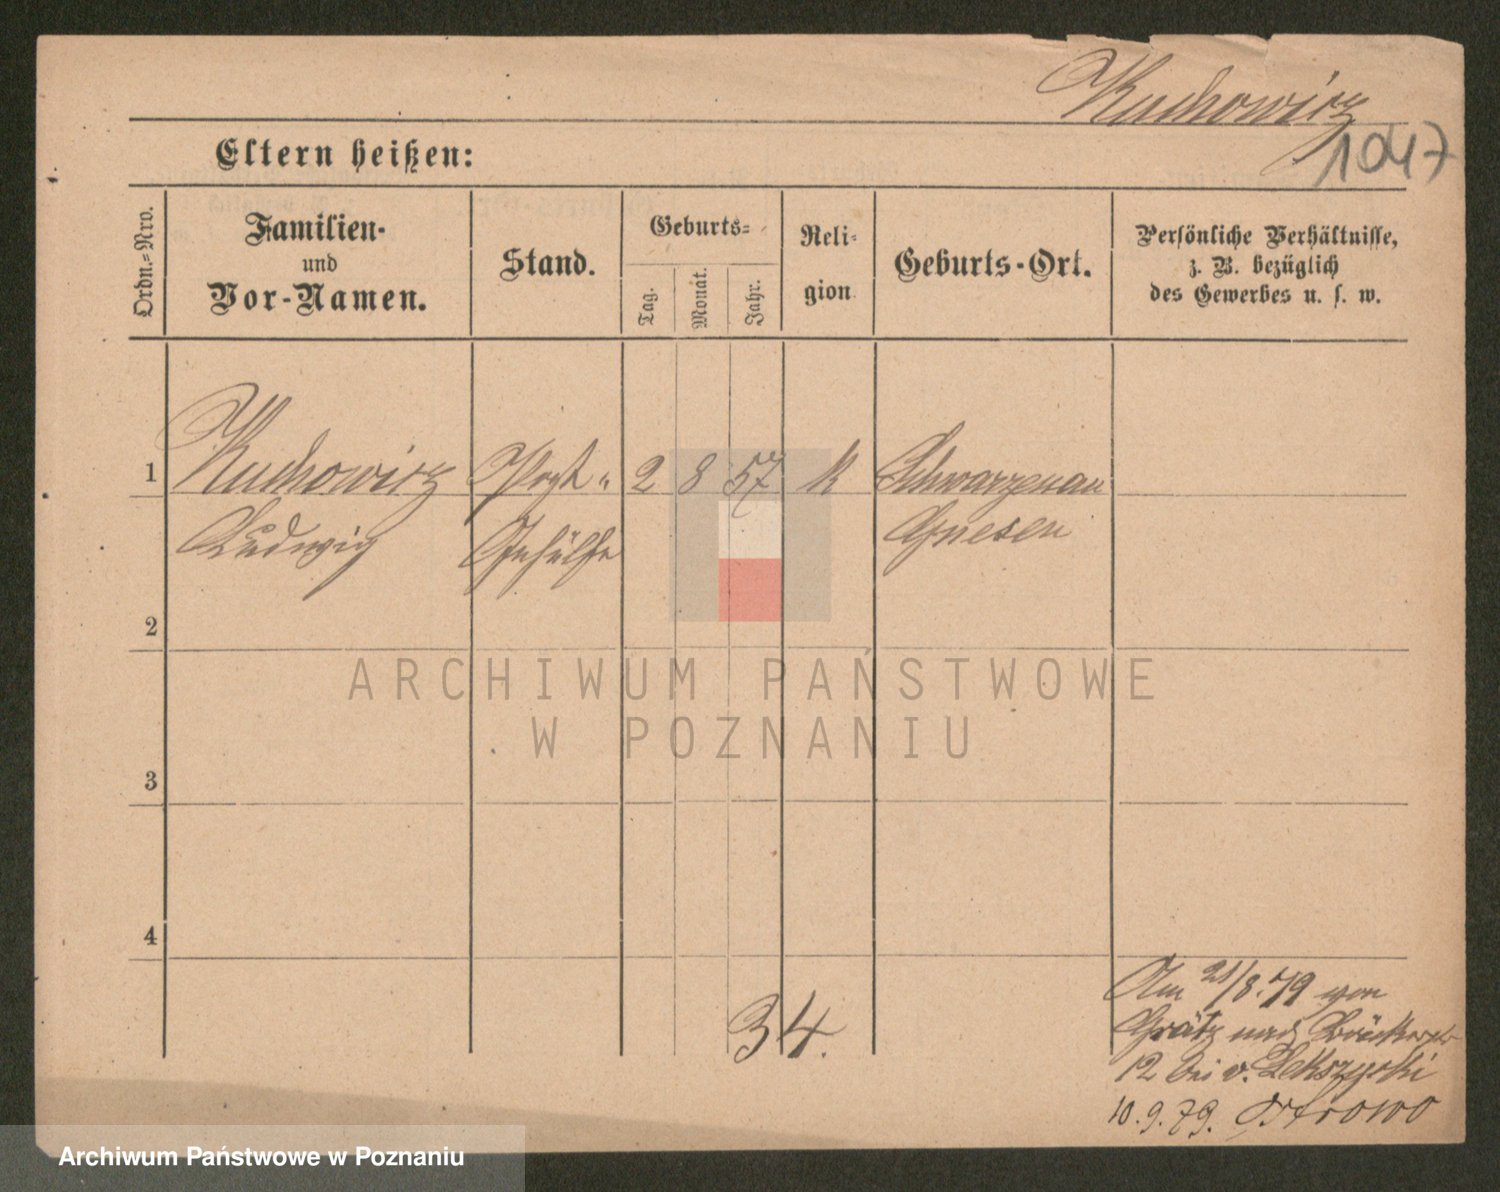 Kuchowicz
1047
Eltern heißen:
Ordn.-Nro.
Familien-
und
Vor-Namen.
Stand.
Geburts-
Tag.
Monat.
Jahr.
Reli-
gion
Geburts-Ort.
Persönliche Verhältnisse,
z. B. bezüglich
des Gewerbes u. s. w.
1 Kuchowicz Post- 2 8 57 k Schwarzenau
Ludwig Gehülfe Gnesen
2
ARCHIWUM PAŃSTWOWE
W POZNANIU
3
4
34.
Am 21/8.79 von
Grätz nach
12 bei v.
10.9.79. Ostrowo
Archiwum Państwowe w Poznaniu